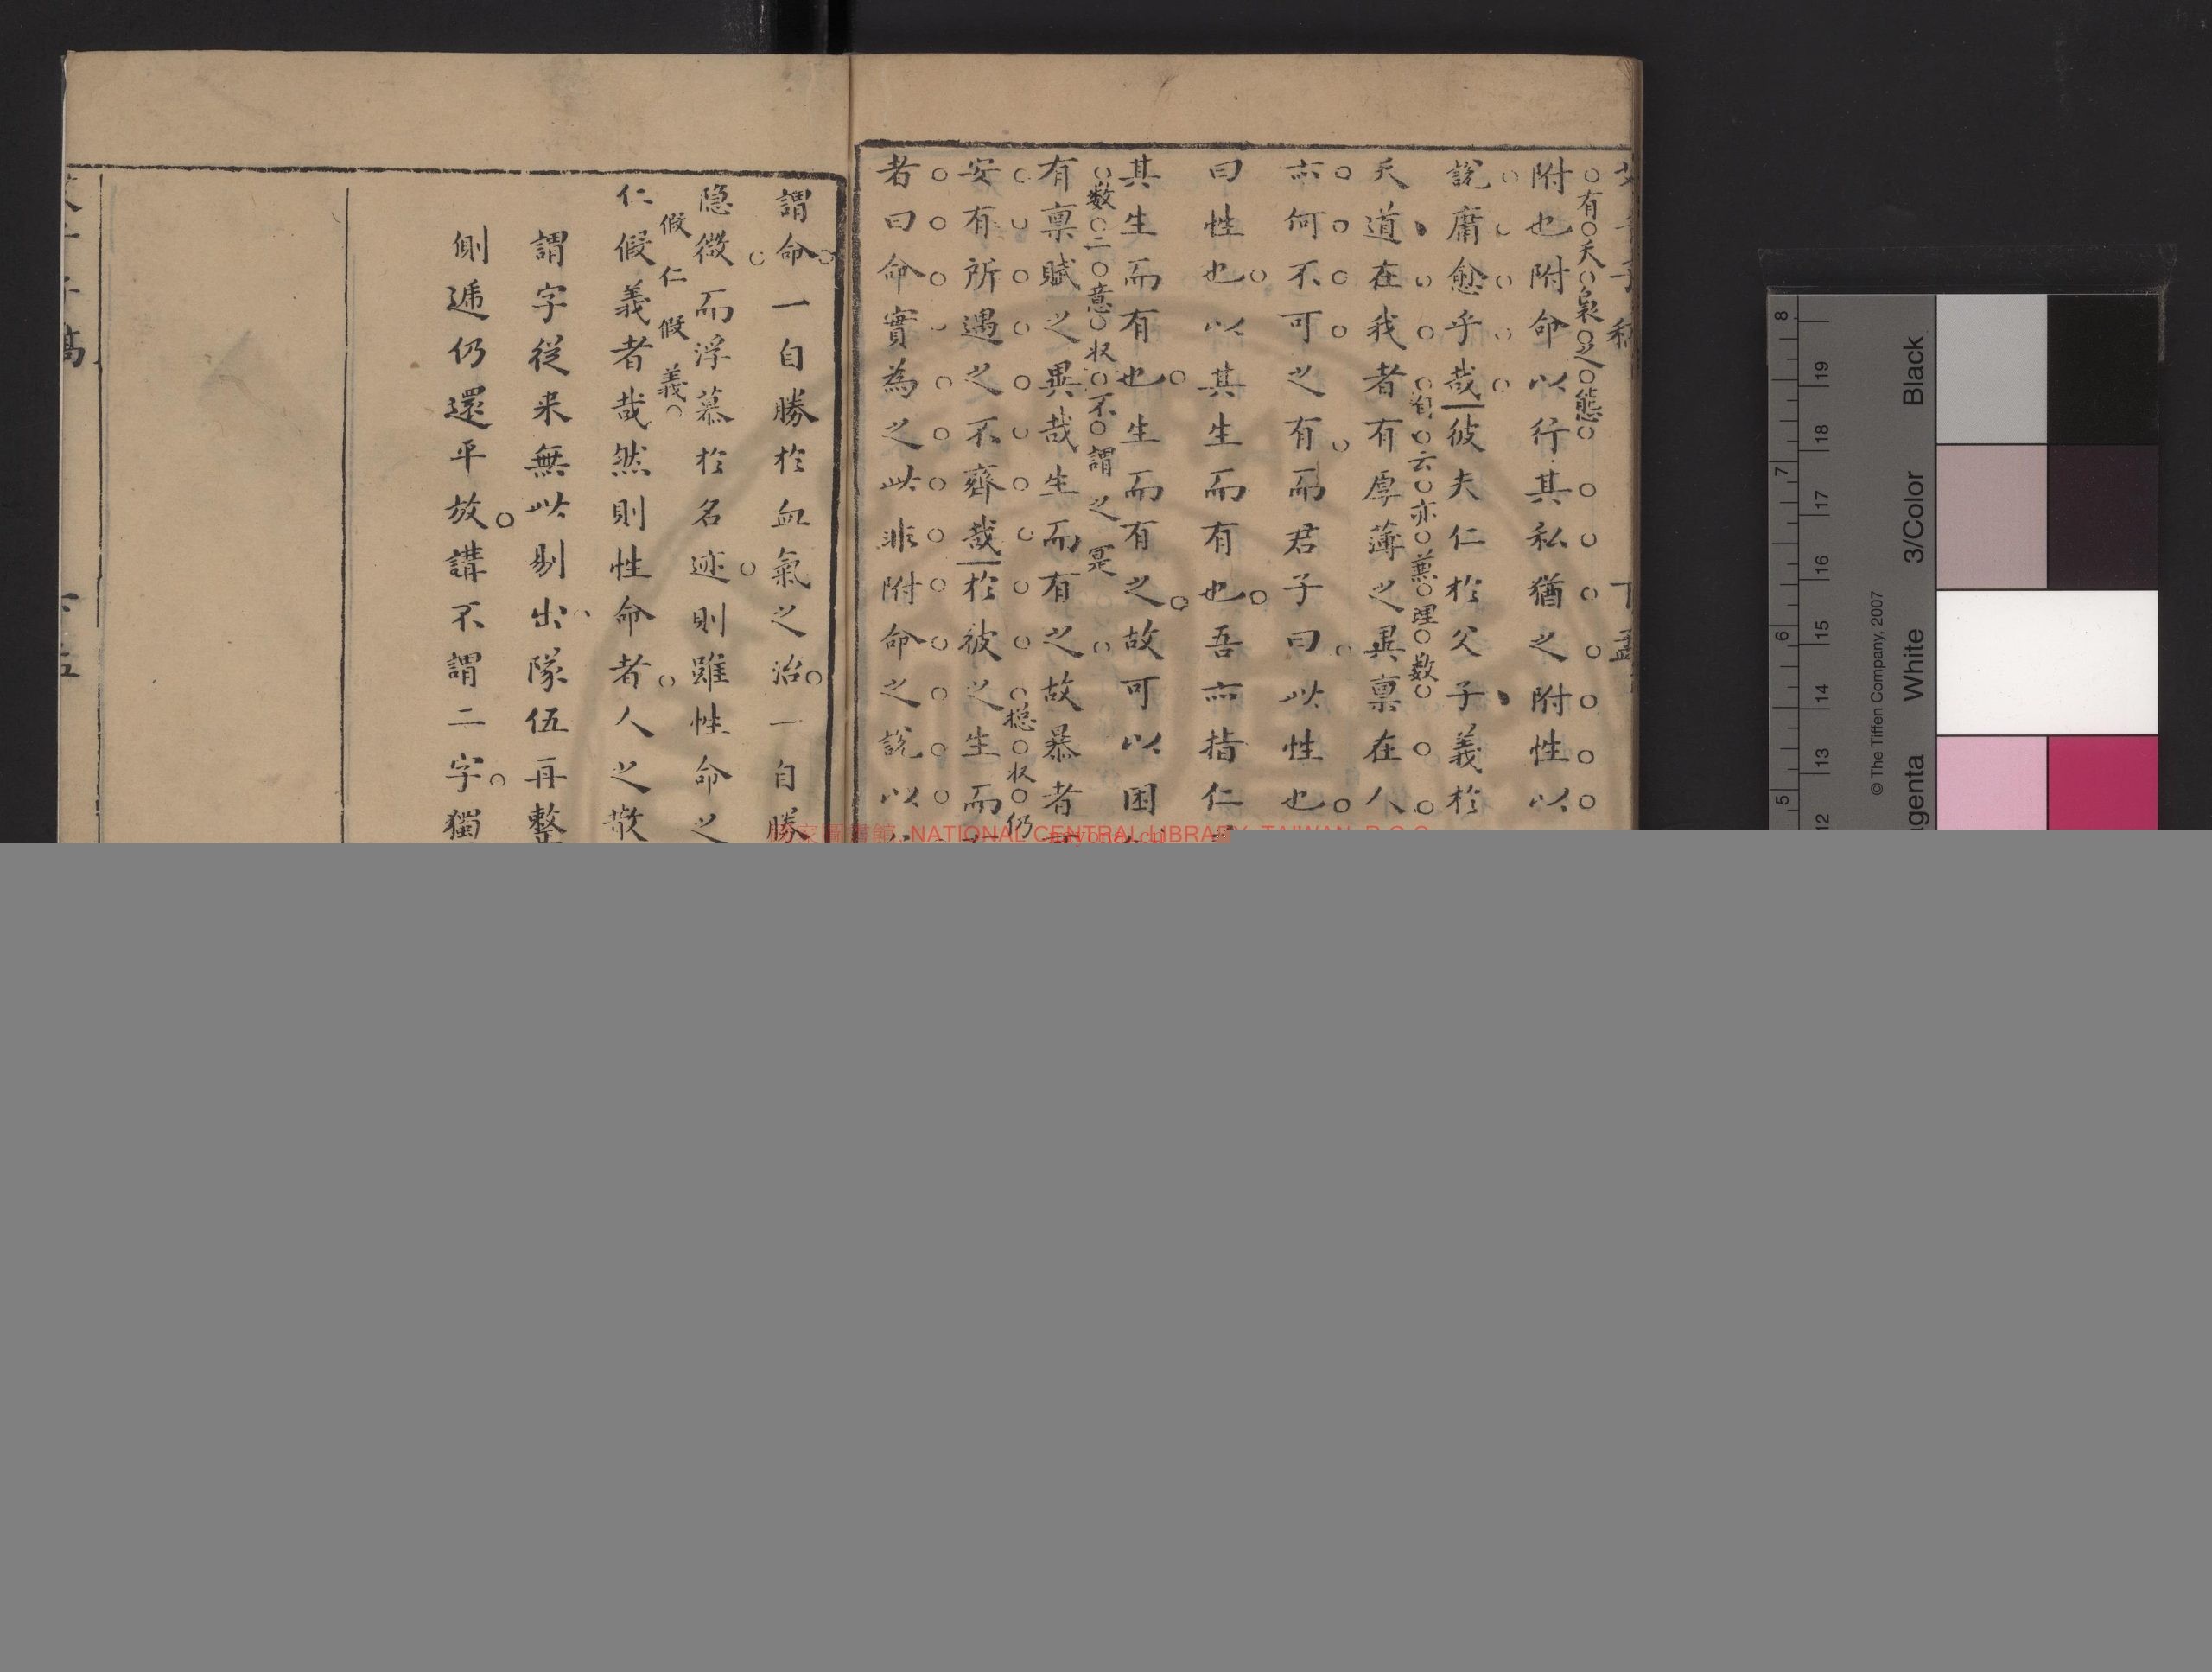 有天泉之態
附也附命以行其私猶之附性以
說庸愈乎哉彼夫仁於父子義於
云亦兼理数
天道在我者有厚薄之異禀在人
亦何不可之有而君子曰此性也
曰性也以其生而有也吾亦指仁
其生而有也生而有之故可以困
数二意収不謂之寔
有禀賦之異哉生而有之故暴者
総収仍
安有所遇之不齊哉於彼之生而
者曰命實為之此非附命之說以
謂命一自勝於血氣之治一自勝
隐微而浮慕於名迹則雖性命之
假仁假義
仁假義者哉然則性命者人之散
謂字從来無此剔出隊伍再整
側遞仍還平放講不謂二字獨
NATIONAL CENTRAL LIBRARY, TAIWAN, R.O.C
8 7 6 5
19 18 17 16 15 14 13 12
© The Tiffen Company, 2007
Black
3/Color
White
agenta